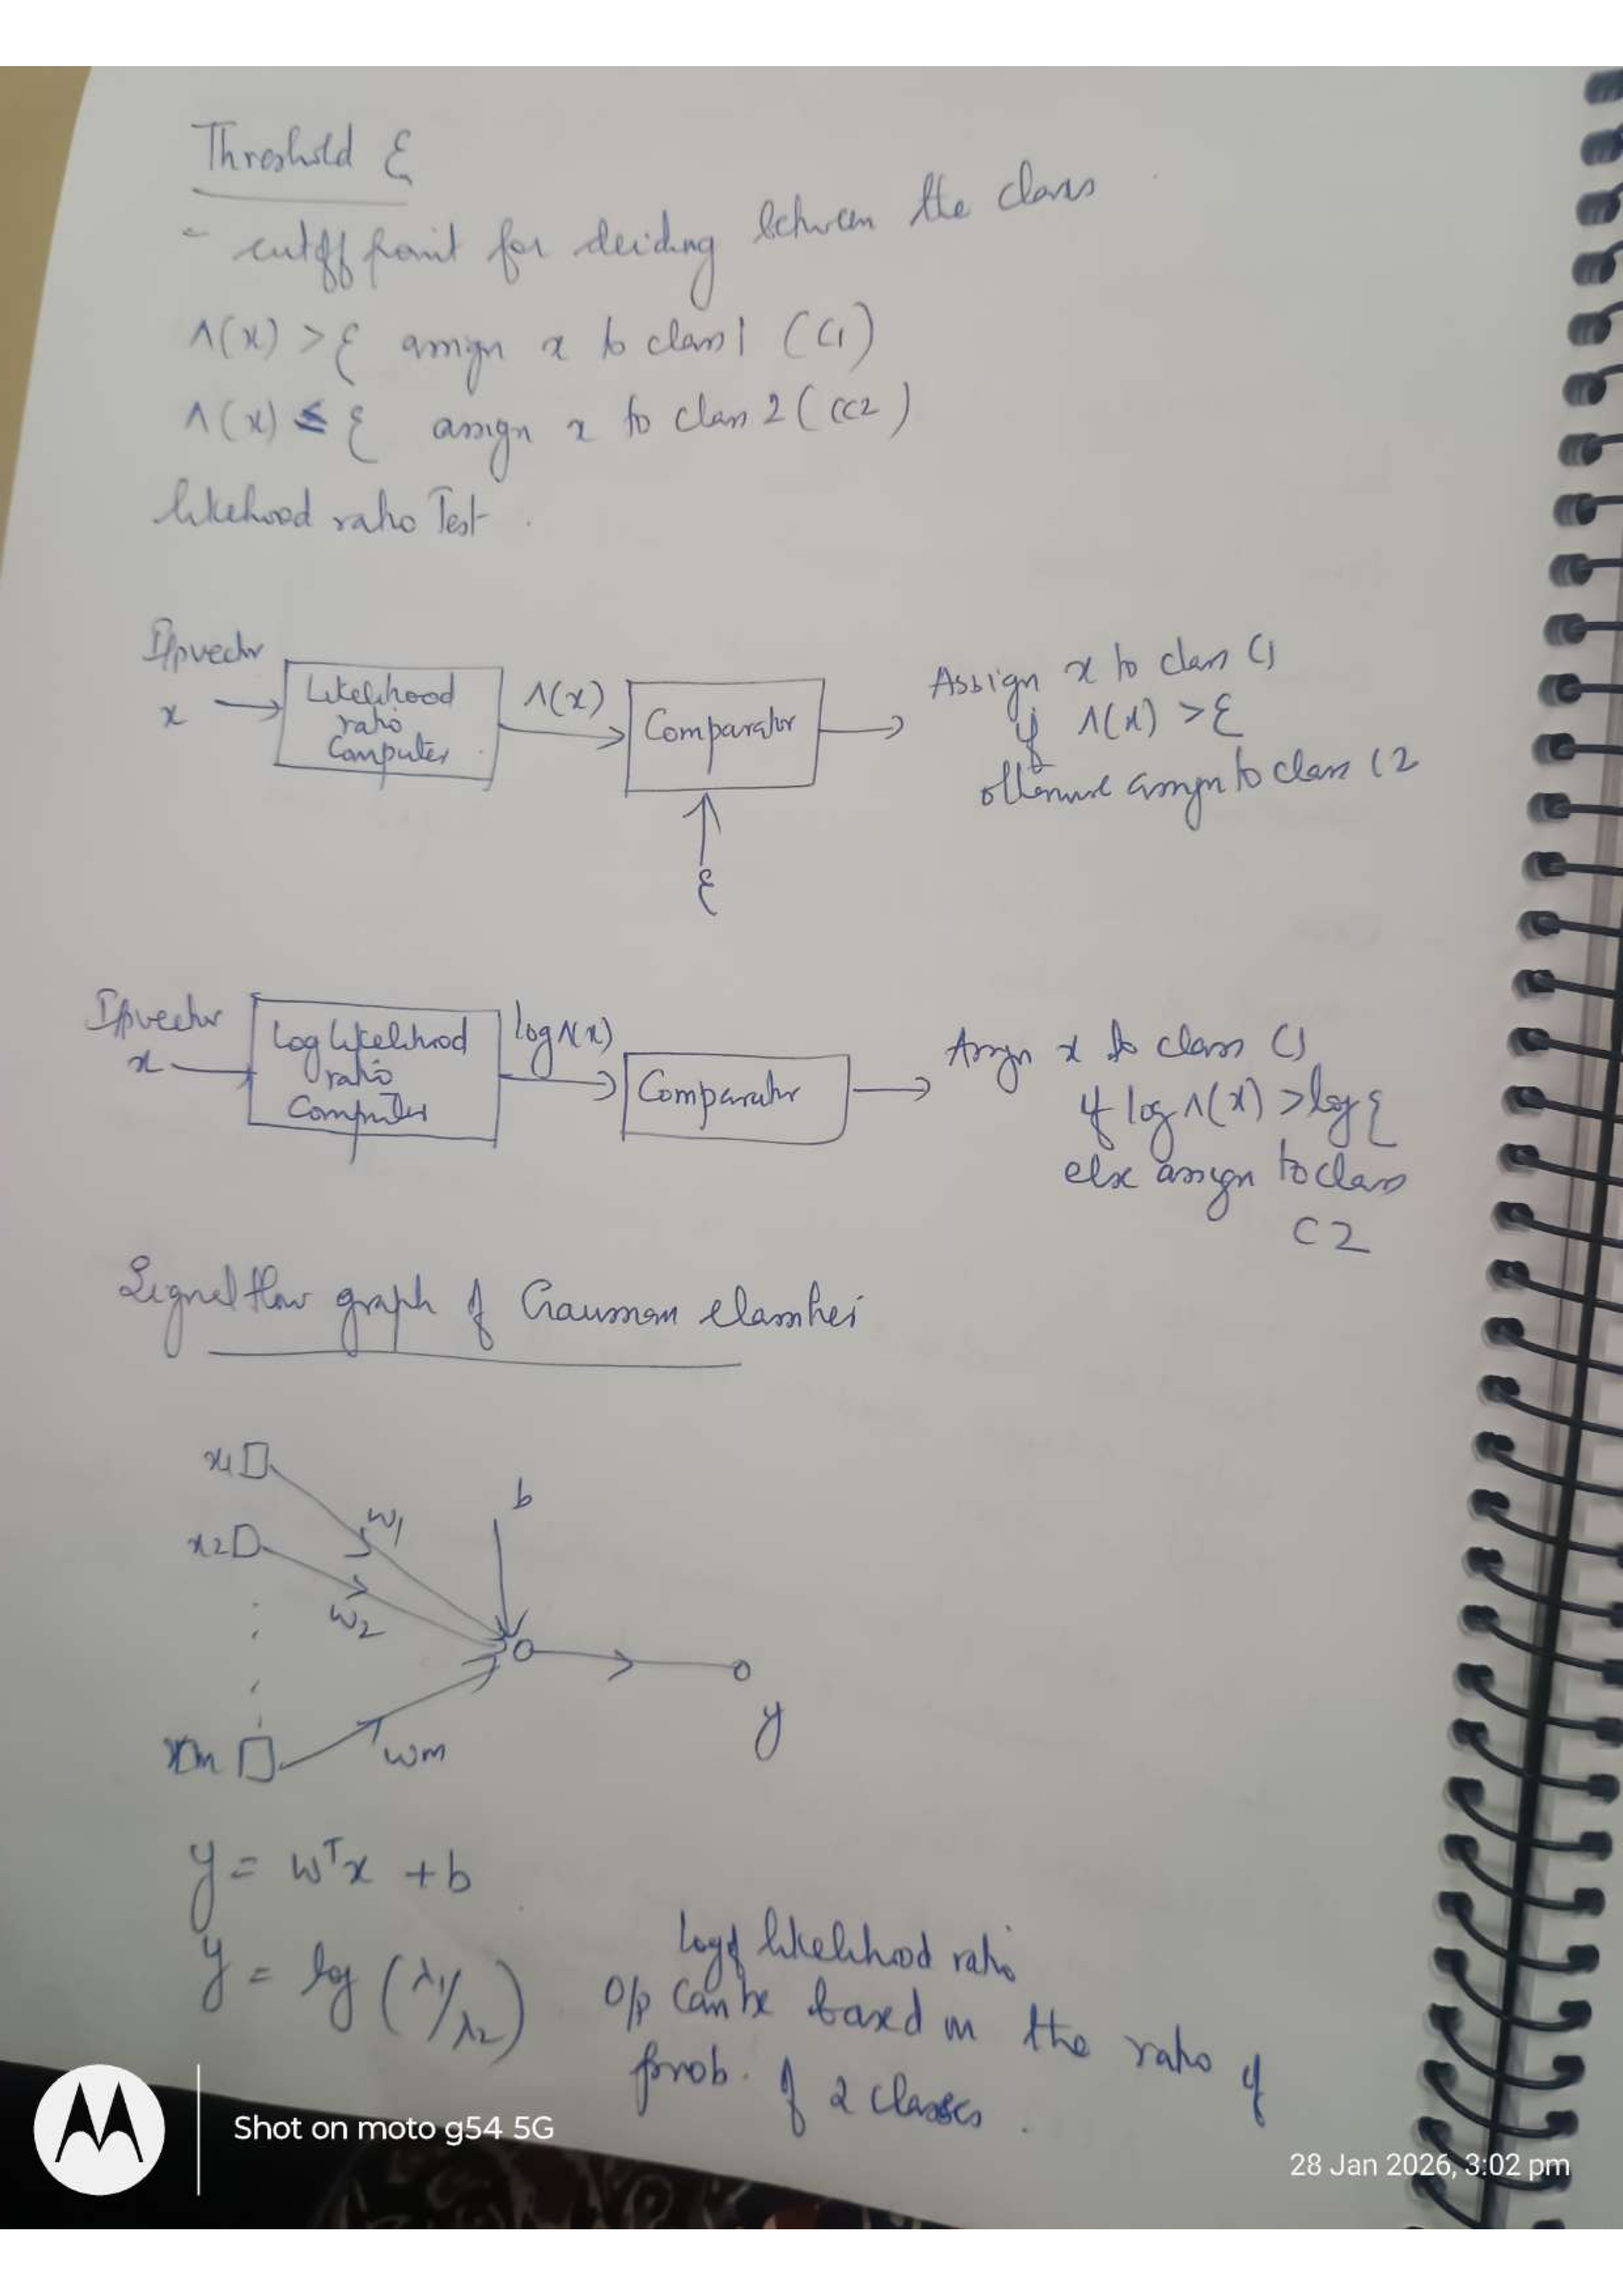 Threshold ξ
- cutoff point for deciding between the class
Λ(x) > ξ assign x to class 1 (C1)
Λ(x) ≤ ξ assign x to class 2 (CC2)
likehood ratio Test.
I/p vector
x
Likelihood
ratio
Computer
Λ(x)
Comparator
ξ
Assign x to class C1
if Λ(x) > ξ
otherwise assign to class C2
I/p vector
x
Log likelihood
ratio
Computer
log Λ(x)
Comparator
Assign x to class C1
if log Λ(x) > log ξ
else assign to class
C2
Signal flow graph of Gaussian classifier
x1
w1
b
x2
w2
xm
wm
y
y = wᵀx + b
y = log (λ1/λ2)
Log of likelihood ratio
O/p can be based on the ratio of
prob. of 2 classes.
Shot on moto g54 5G
28 Jan 2026, 3:02 pm